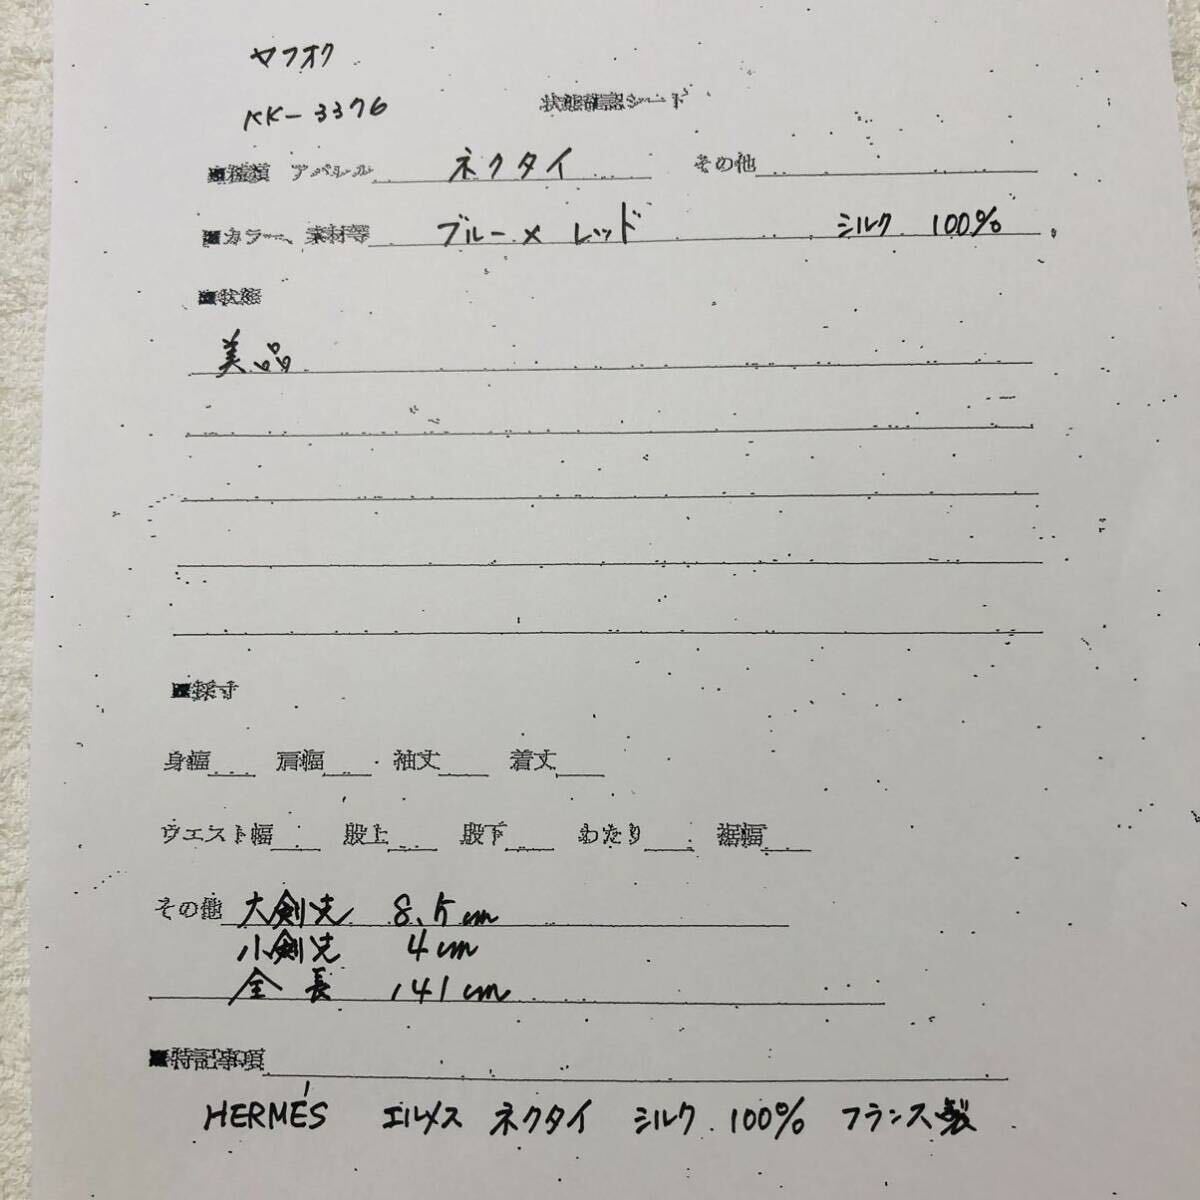 ヤフオク
KK-3376
状態確認シード
■種類 アパレル ネクタイ その他
■カラー、素材等 ブルー×レッド シルク 100%
■状態
美品
■採寸
身幅 肩幅 袖丈 着丈
ウエスト幅 股上 股下 わたり 裾幅
その他 大剣先 8.5cm
小剣先 4cm
全長 141cm
■特記事項
HERMÉS エルメス ネクタイ シルク 100% フランス製